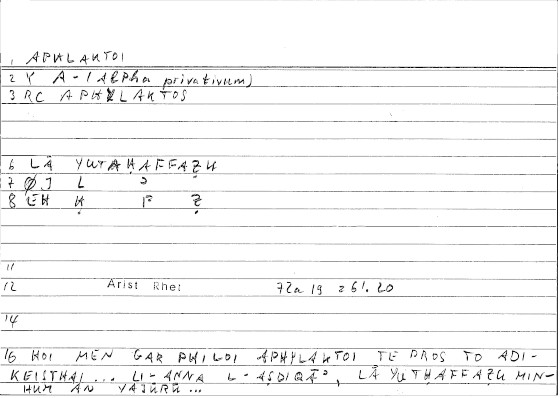 1 APHLAKTOI
2 Y A-(Alpha privativum)
3 RC APHYLAKTOS
6 LĀ YUTAḤAFFAẒU
7 ØJ L ʾ
8 EH Ḥ F Ẓ
11
12 Arist Rhet 72a 19 = 61.20
14
16 HOI MEN GAR PHILOI APHYLAKTOI TE PROS TO ADI-
KEISTHAI ... LI-ANNA L-AṢDIQĀʾ, LĀ YUTḤAFFAẒU MIN-
HUM AN YAJŪRŪ ...